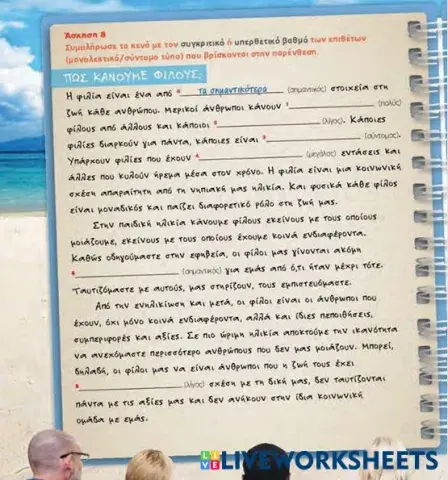 Άσκηση 8
Συμπλήρωσε τα κενά με τον συγκριτικό ή υπερθετικό βαθμό των επιθέτων
(μονολεκτικό/σύντομο τύπο) που βρίσκονται στην παρένθεση.
ΠΩΣ ΚΑΝΟΥΜΕ ΦΙΛΟΥΣ;
Η φιλία είναι ένα από τα σημαντικότερα (σημαντικός) στοιχεία στη
ζωή κάθε ανθρώπου. Μερικοί άνθρωποι κάνουν (πολύς)
φίλους από άλλους και κάποιοι (λίγος). Κάποιες
φιλίες διαρκούν για πάντα, κάποιες είναι (σύντομος).
Υπάρχουν φιλίες που έχουν (μεγάλος) εντάσεις και
άλλες που κυλούν ήρεμα μέσα στον χρόνο. Η φιλία είναι μια κοινωνική
σχέση απαραίτητη από τη νηπιακή μας ηλικία. Και φυσικά κάθε φίλος
είναι μοναδικός και παίζει διαφορετικό ρόλο στη ζωή μας.
Στην παιδική ηλικία κάνουμε φίλους εκείνους με τους οποίους
μοιάζουμε, εκείνους με τους οποίους έχουμε κοινά ενδιαφέροντα.
Καθώς οδηγούμαστε στην εφηβεία, οι φίλοι μας γίνονται ακόμη
(σημαντικός) για εμάς από ό,τι ήταν μέχρι τότε.
Ταυτιζόμαστε με αυτούς, μας στηρίζουν, τους εμπιστευόμαστε.
Από την ενηλικίωση και μετά, οι φίλοι είναι οι άνθρωποι που
έχουν, όχι μόνο κοινά ενδιαφέροντα, αλλά και ίδιες πεποιθήσεις,
συμπεριφορές και αξίες. Σε πιο ώριμη ηλικία αποκτούμε την ικανότητα
να ανεχόμαστε περισσότερο ανθρώπους που δεν μας μοιάζουν. Μπορεί,
δηλαδή, οι φίλοι μας να είναι άνθρωποι που η ζωή τους έχει
(λίγος) σχέση με τη δική μας, δεν ταυτίζονται
πάντα με τις αξίες μας και δεν ανήκουν στην ίδια κοινωνική
ομάδα με εμάς.
LIVEWORKSHEETS